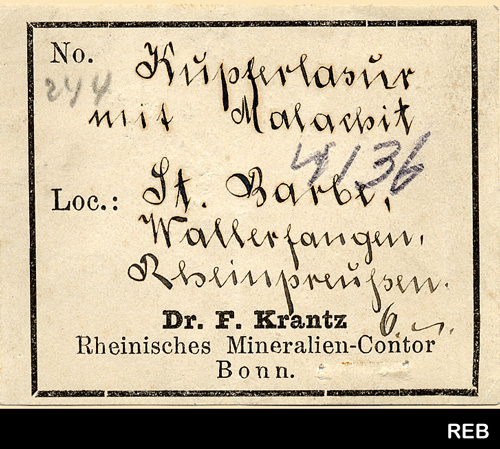 No. Kupferlasur
244
mit Malachit
4136
Loc.: St. Barbe,
Wallerfangen,
Rheinpreußen.
Dr. F. Krantz
Rheinisches Mineralien-Contor
Bonn.
REB